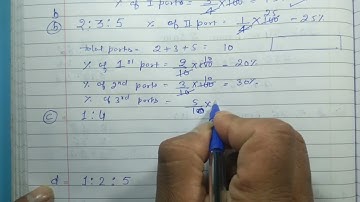 % of I part = 1/4 × 100
b
(b) 2:3:5 % of II part = 1/4 × 100 25 - 25%
total parts - 2+3+5 = 10
% of 1st part = 2/10 × 100 10 = 20%
% of 2nd parts = 3/10 × 100 10 = 30%
% of 3rd parts - 5/10 ×
(c) 1:4
d - 1:2:5